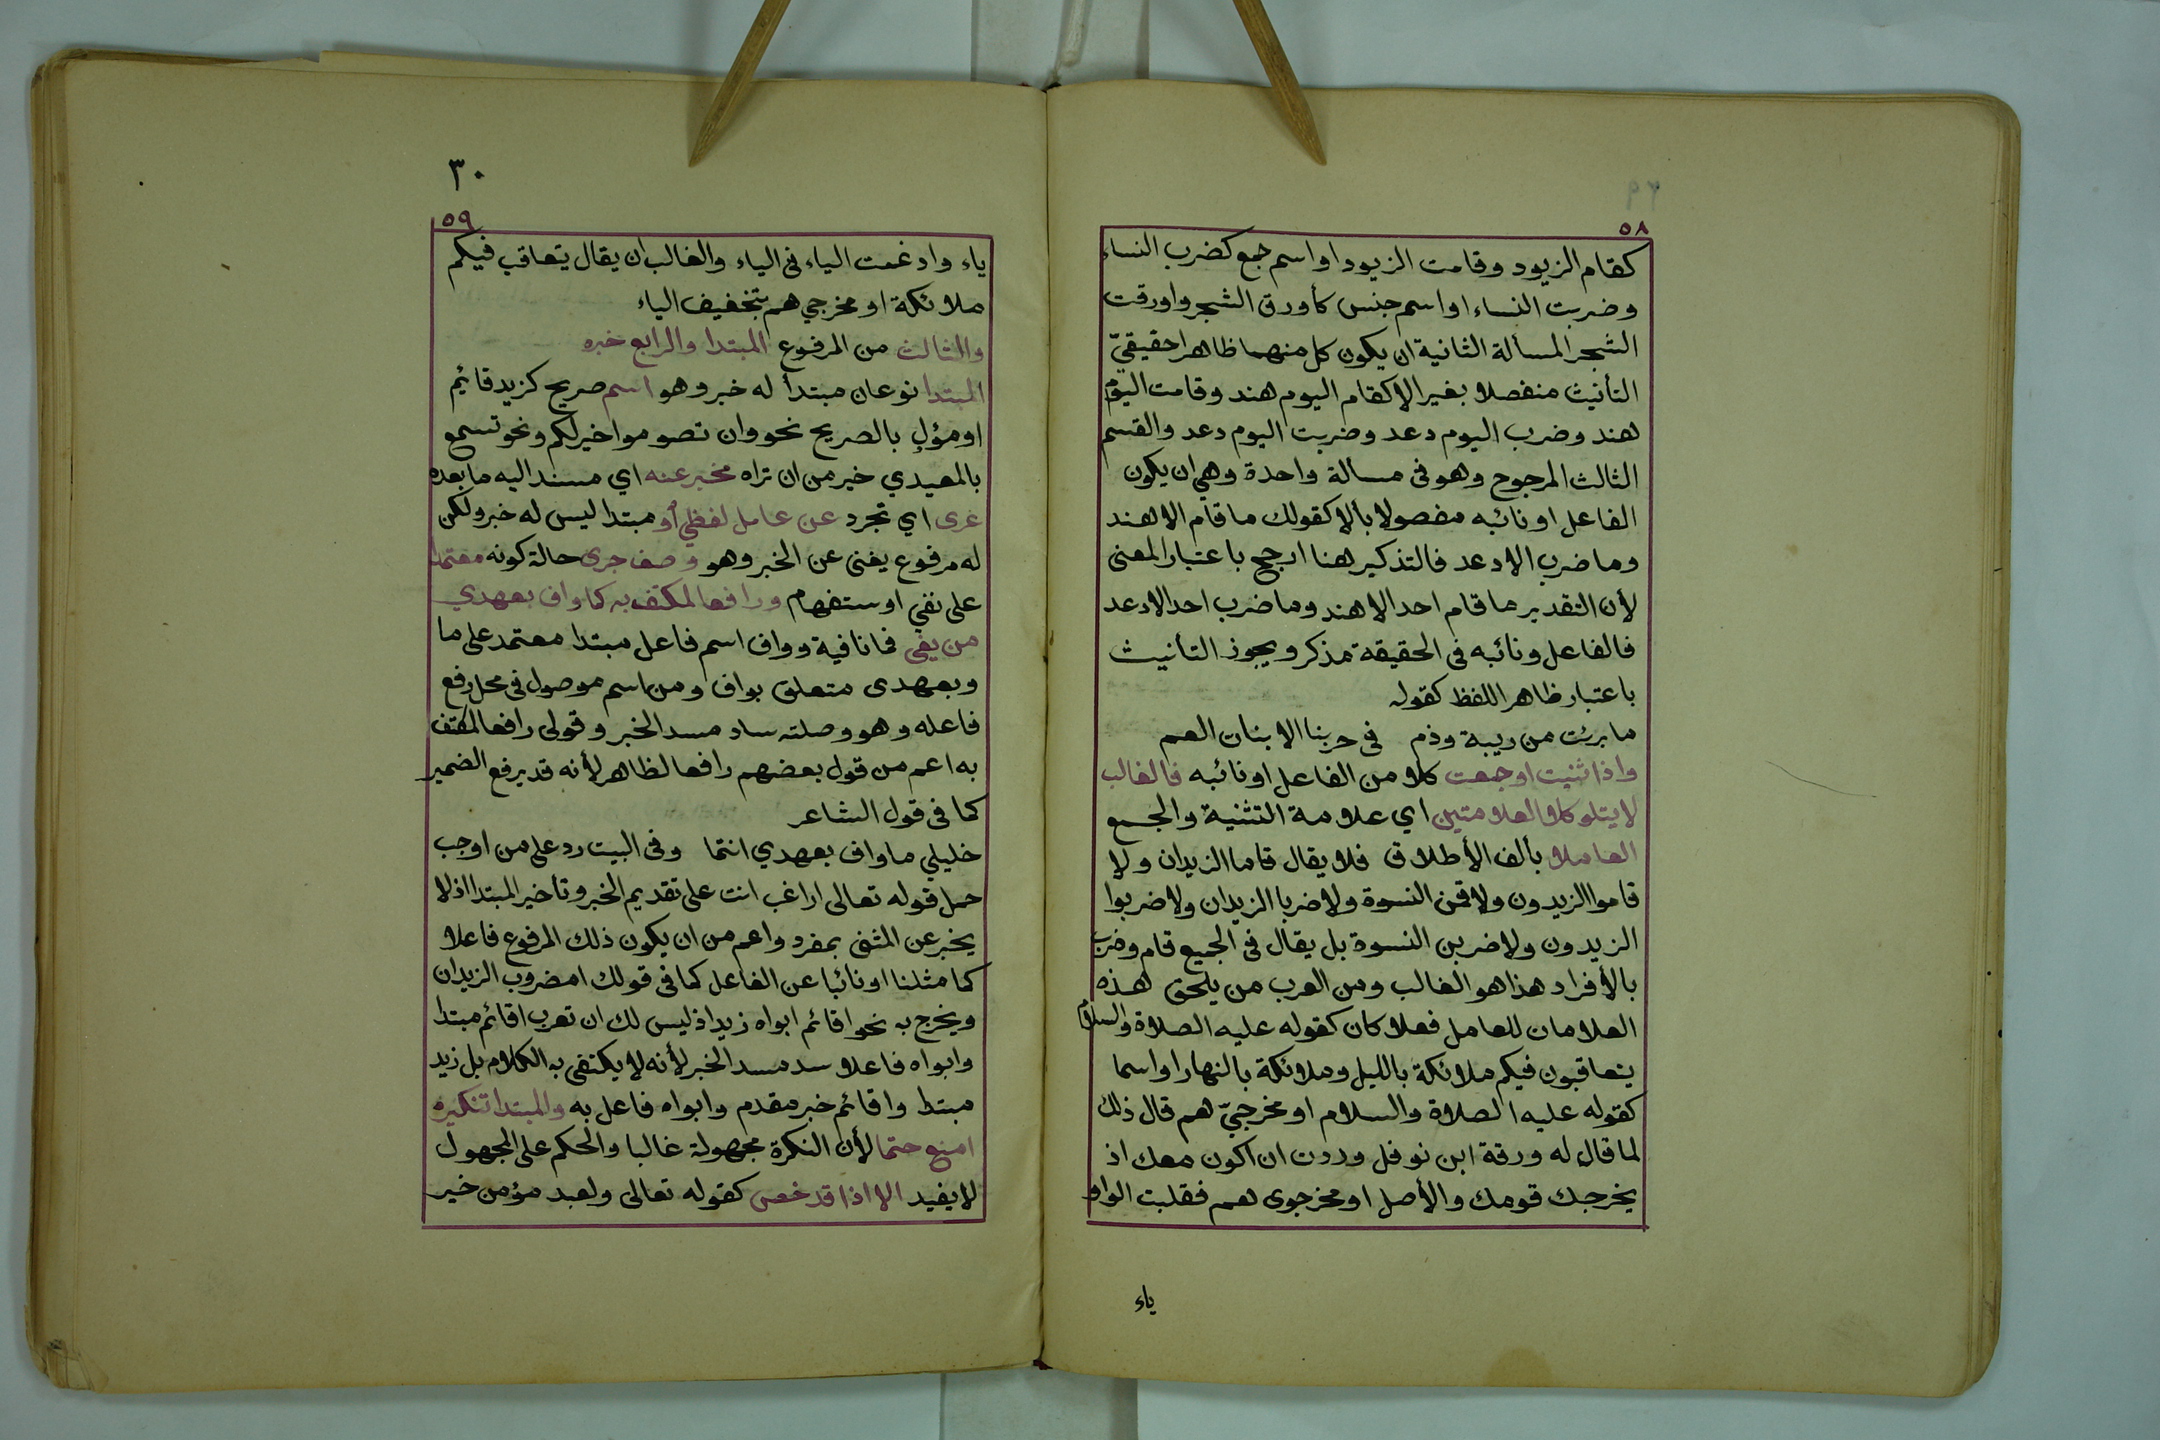 ٥٨
كقام الزيود وقامت الزيود او اسم جمع كضرب النساء
وضربت النساء او اسم جنس كأورق الشجر واورقت
الشجر المسألة الثانية ان يكون كل منهما ظاهرا حقيقيّ
التأنيث منفصلا بغير الا كقام اليوم هند وقامت اليوم
هند وضرب اليوم دعد وضربت اليوم دعد والقسم
الثالث المرجوح وهو فى مسألة واحدة وهي ان يكون
الفاعل او نائبه مفصولا بألا كقولك ما قام الا هند
وما ضرب الا دعد فالتذكير هنا ارجح باعتبار المعنى
لأن التقدير ما قام احد الا هند وما ضرب احد الا دعد
فالفاعل ونائبه فى الحقيقة مذكر ويجوز التأنيث
باعتبار ظاهر اللفظ كقوله
ما برئت من ريبة وذم فى حربنا الا بنات العم
واذا ثنيت او جمعت كلا من الفاعل او نائبه فالغالب
لا يتلو كلا العلامتين اي علامة التثنية والجمع
العاملا بألف الأطلاق فلا يقال قاما الزيدان ولا
قاموا الزيدون ولا قمن النسوة ولا ضربا الزيدان ولا ضربوا
الزيدون ولا ضربن النسوة بل يقال فى الجميع قام وضرب
بالأفراد هذا هو الغالب ومن العرب من يلحق هذه
العلامان للعامل فعلا كان كقوله عليه الصلاة والسلام
يتعاقبون فيكم ملائكة بالليل وملائكة بالنهار او اسما
كقوله عليه الصلاة والسلام او مخرجيّ هم قال ذلك
لما قال له ورقة ابن نوفل وددت ان اكون معك اذ
يخرجك قومك والأصل او مخرجوى هم فقلبت الواو
ياء
٣٠
٥٩
ياء وادغمت الياء فى الياء والغالب ان يقال يتعاقب فيكم
ملائكة او مخرجي هم بتخفيف الياء
والثالث من المرفوع المبتدا والرابع خبره
المبتدا نوعان مبتدأ له خبر وهو اسم صريح كزيد قائم
او مؤل بالصريح نحو وان تصوموا خير لكم ونحو تسمع
بالمعيدي خير من ان تراه مخبر عنه اي مسند اليه ما بعده
عرى اي تجرد عن عامل لفظي أو مبتدا ليس له خبر ولكن
له مرفوع يغنى عن الخبر وهو وصف جرى حالة كونه معتمدا
على نفي او ستفهام ورافعا لمكتف به كما واف بعهدي
من يفى فما نافية وواف اسم فاعل مبتدا معتمد على ما
وبعهدى متعلق بواف ومن اسم موصول فى محل رفع
فاعله وهو وصلته ساد مسد الخبر وقولى رافعا لمكتف
به اعم من قول بعضهم رافعا لظاهر لأنه قد يرفع الضمير
كما فى قول الشاعر
خليلي ما واف بعهدي انتما وفى البيت رد على من اوجب
حمل قوله تعالى اراغب انت على تقديم الخبر وتأخير المبتدا اذ لا
يخبر عن المثنى بمفرد واعم من ان يكون ذلك المرفوع فاعلا
كما مثلنا او نائبا عن الفاعل كما فى قولك امضروب الزيدان
ويخرج به نحو اقائم ابواه زيد اذ ليس لك ان تعرب اقائم مبتدا
وابواه فاعلا سد مسد الخبر لأنه لا يكتفى به الكلام بل زيد
مبتدا واقائم خبر مقدم وابواه فاعل به والمبتدا تنكيره
امنع حتما لأن النكرة مجهولة غالبا والحكم على المجهول
لا يفيد الا اذا قد خص كقوله تعالى ولعبد مؤمن خير